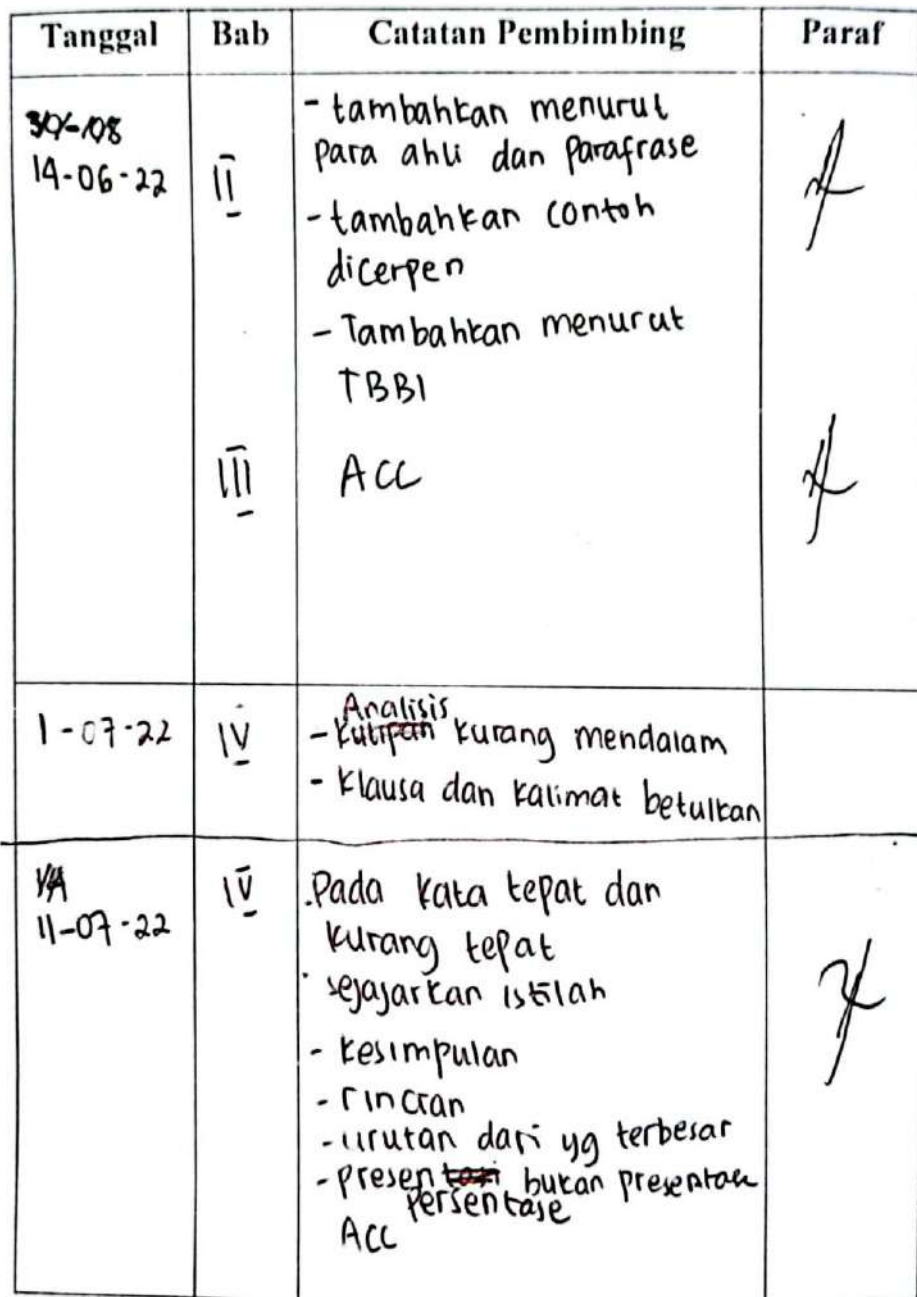 Tanggal Bab Catatan Pembimbing Paraf
- tambahkan menurut
para ahli dan Parafrase
14-06-22 II
- tambahkan contoh
dicerpen
- Tambahkan menurut
TBBI
III ACC
Analisis
1-07-22 IV - Kutipan kurang mendalam
- Klausa dan kalimat betulkan
11-07-22 IV Pada kata tepat dan
kurang tepat
sejajarkan istilah
- kesimpulan
- rincian
- urutan dari yg terbesar
- presentasi bukan presentase
Persentase
ACC